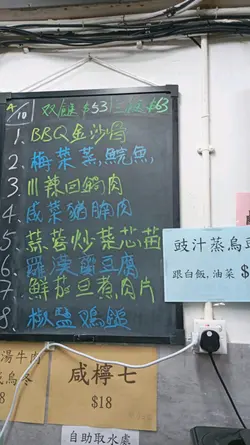 4/10 双餸$53 三餸$63
1. BBQ金沙骨
2. 梅菜蒸鯇魚
3 川辣回鍋肉
4. 咸菜豬腩肉
5. 蒜蓉炒菜芯苗
6. 羅漢齋豆腐
7. 鮮茄旦煮肉片
8. 椒鹽鷄鎚
豉汁蒸烏頭
跟白飯,油菜 $
湯牛肉
8
咸檸七
$18
自助取水處